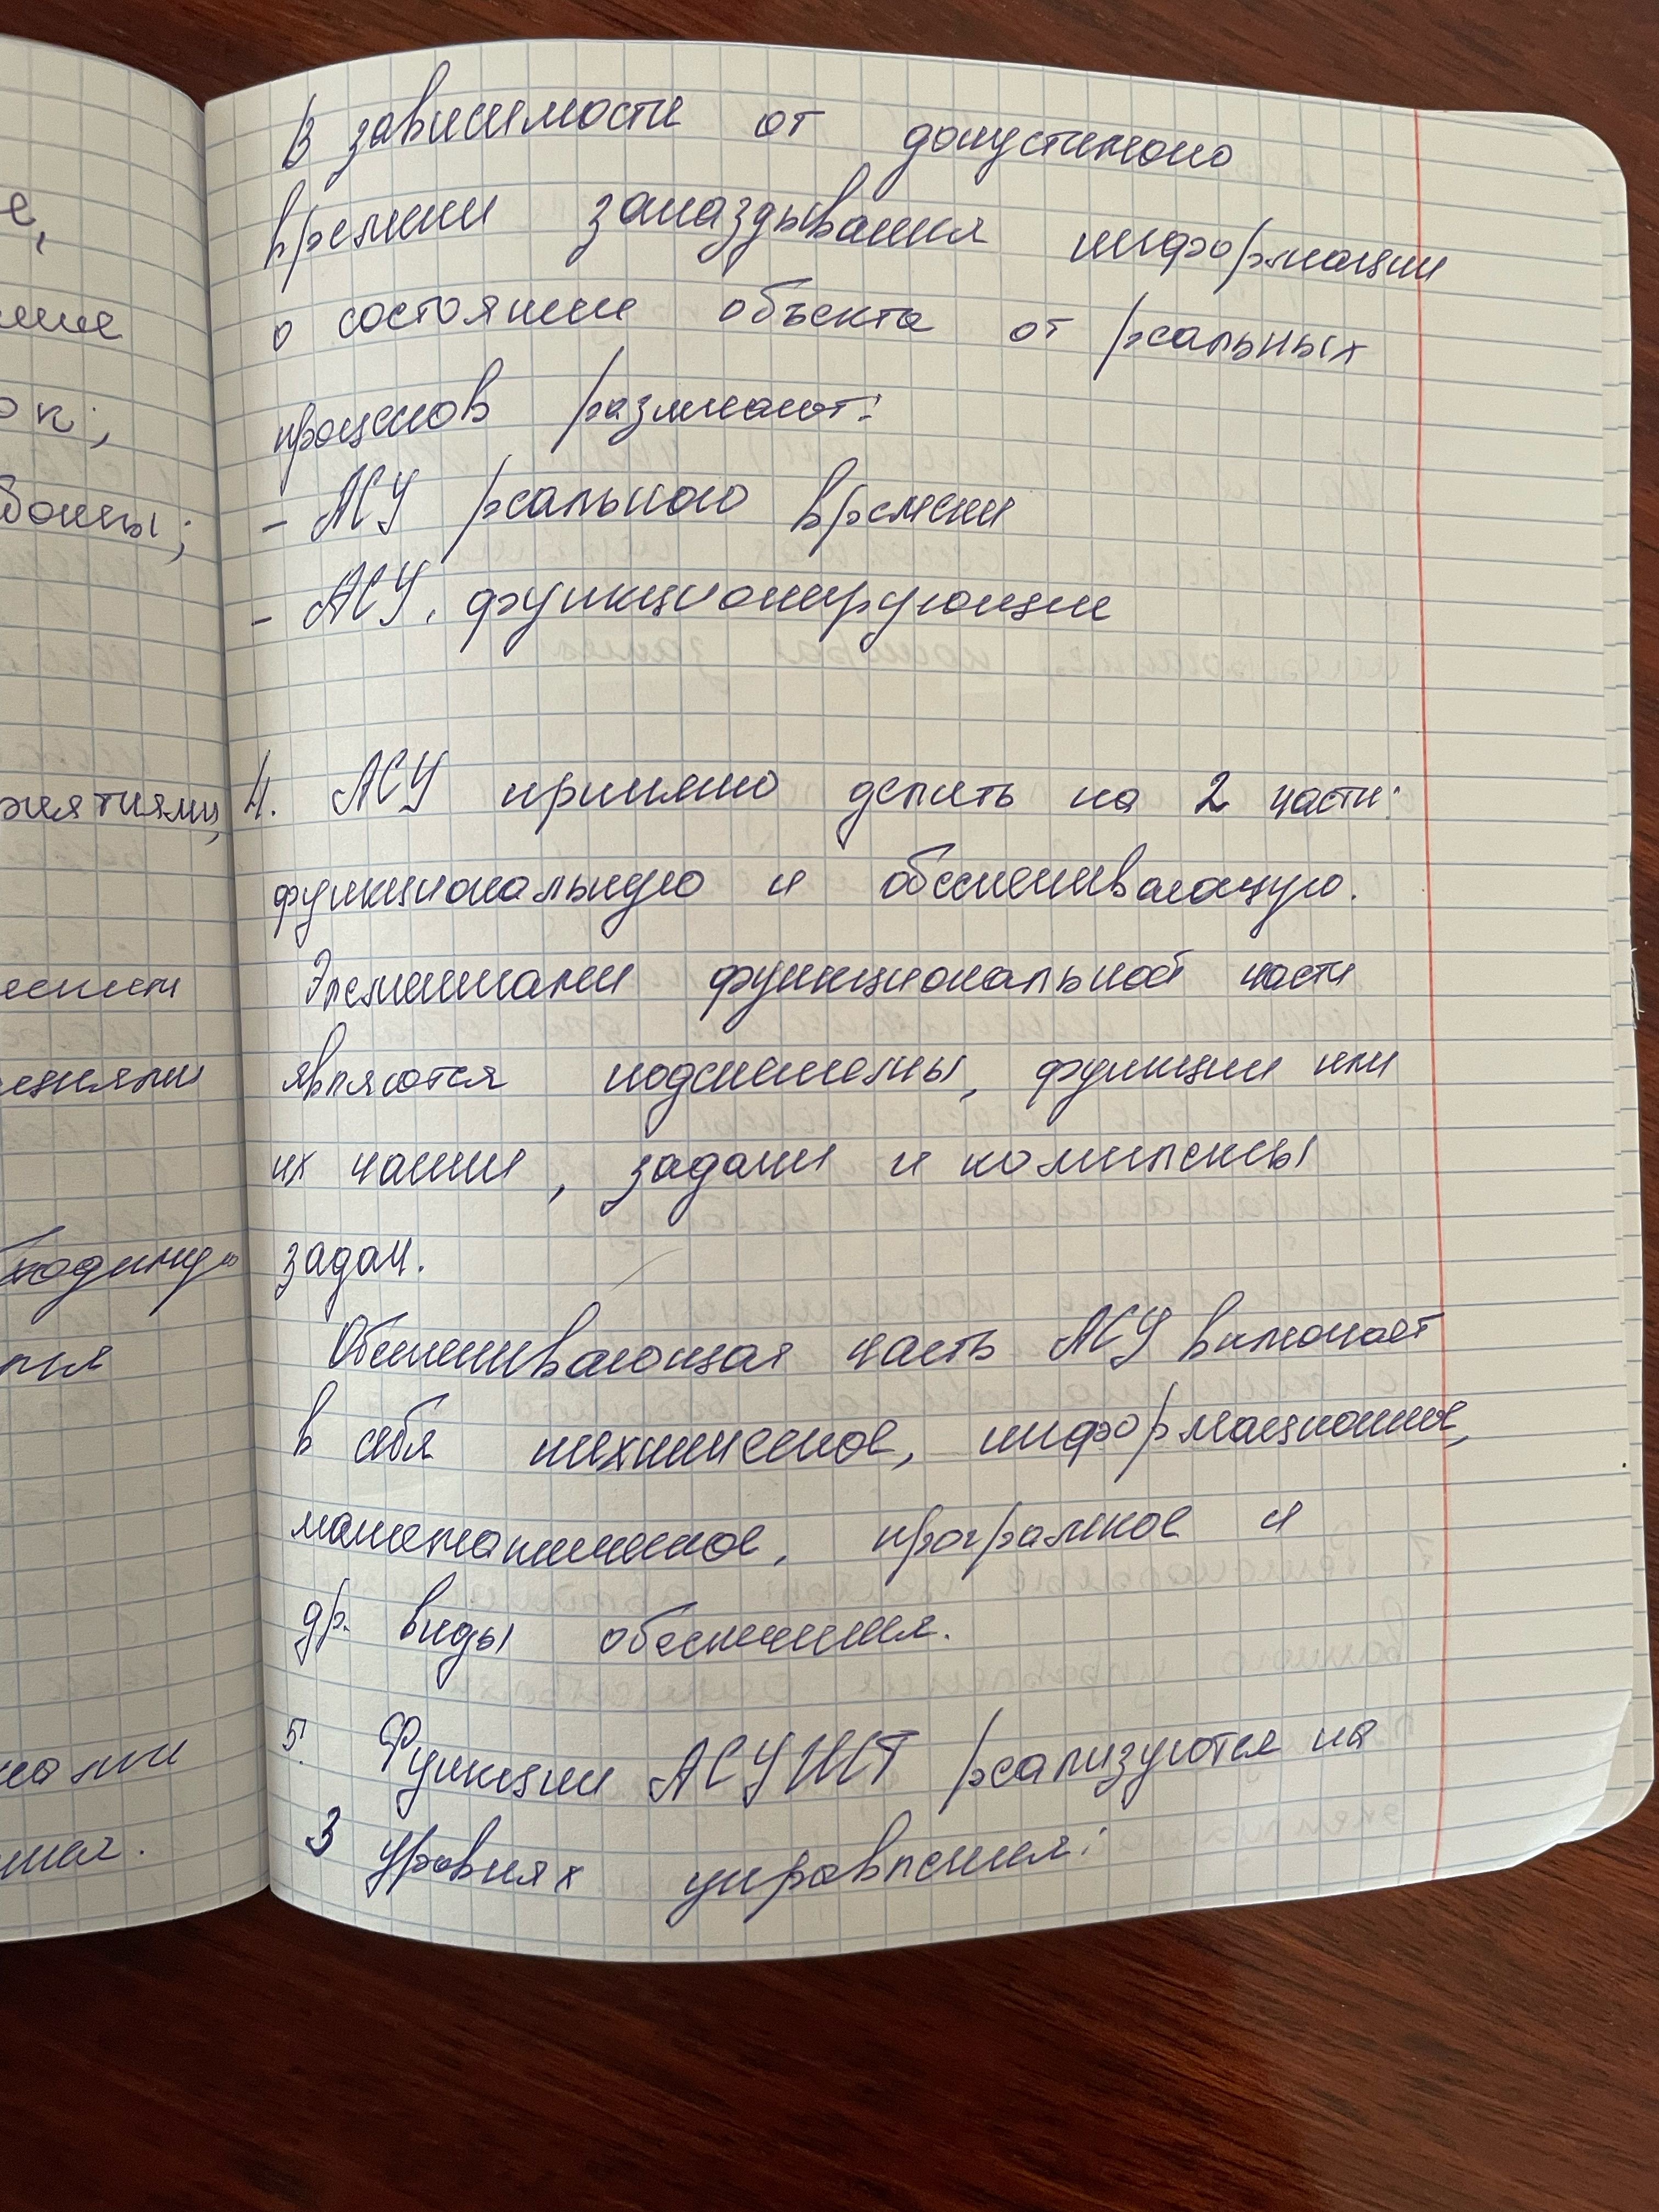 е,
ок;
В зависимости от допустимого
времени запаздывания информации
о состоянии объекта от реальных
процессов различают:
- АСУ реального времени
- АСУ, функционирующие
4. АСУ принято делить на 2 части:
функциональную и обеспечивающую.
Элементами функциональной части
являются подсистемы, функции или
их части, задачи и комплексы
задач.
Обеспечивающая часть АСУ включает
в себя техническое, информационное,
математическое, програмное и
др. виды обеспечения.
5. Функции АСУЖТ реализуются на
3 уровнях управления: